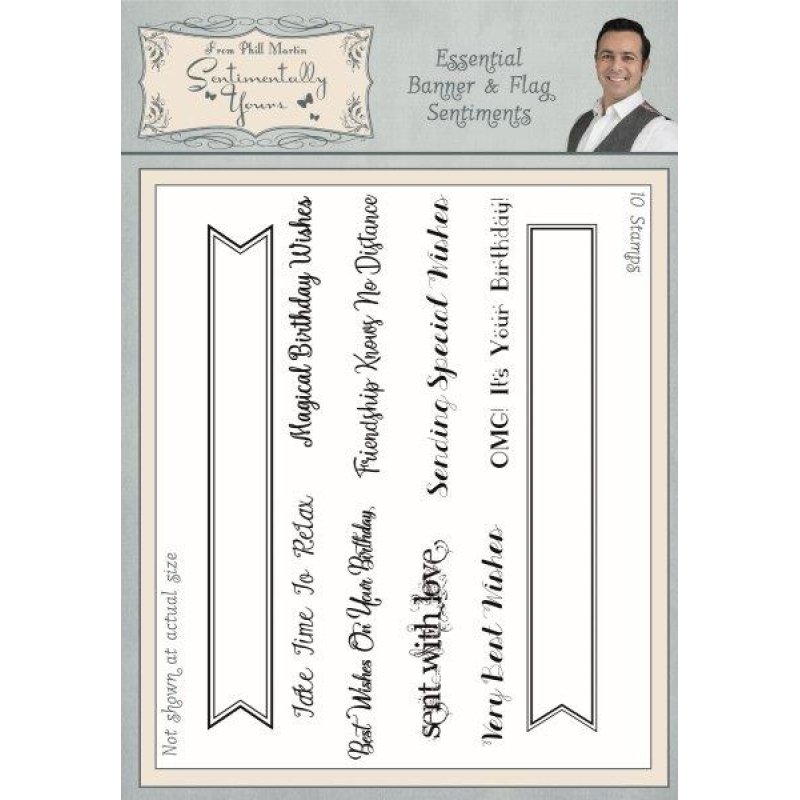 From Phill Martin
Sentimentally
Yours
Essential
Banner & Flag
Sentiments
10 Stamps
Not shown at actual size
Magical Birthday Wishes
Take Time To Relax
Friendship Knows No Distance
Best Wishes On Your Birthday,
Sending Special Wishes
sent with love
OMG! It's Your Birthday!
Very Best Wishes